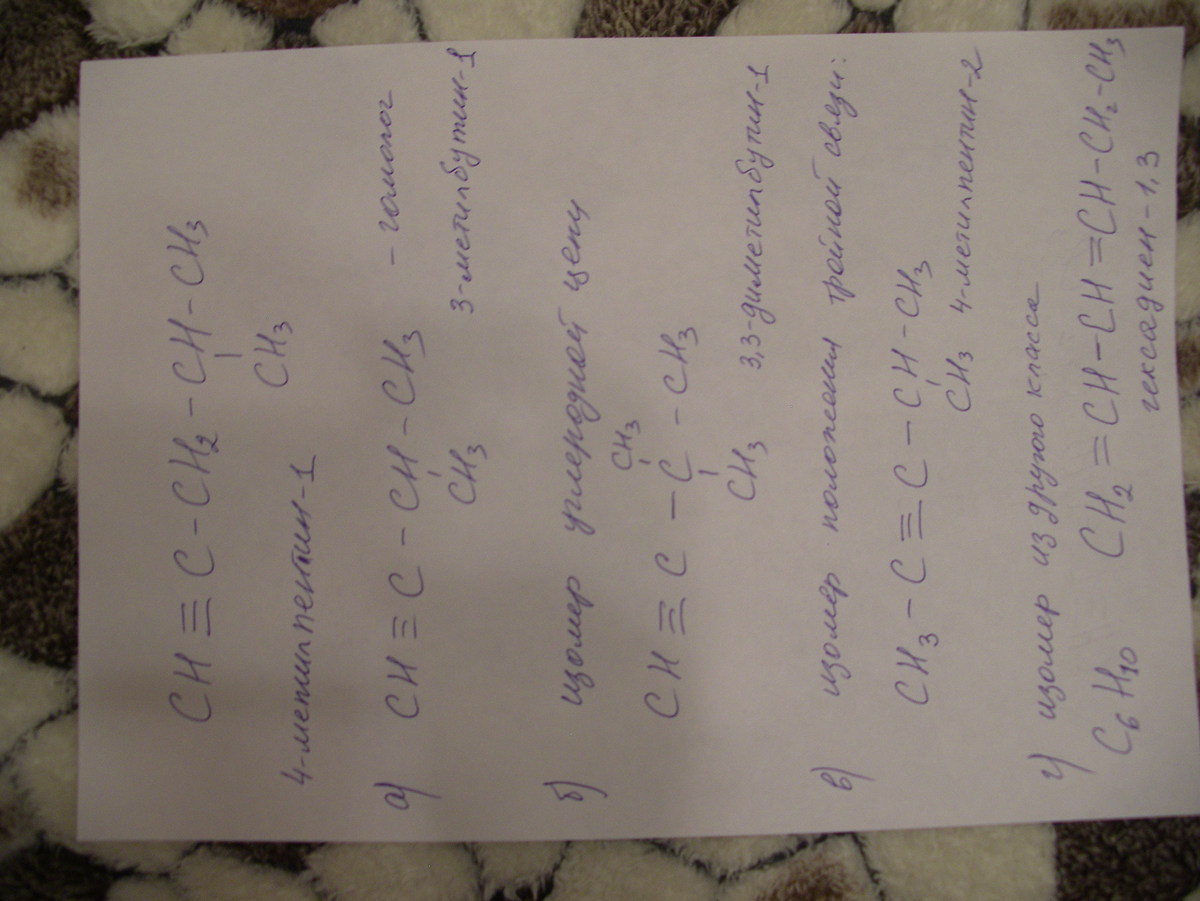 CH ≡ C - CH₂ - CH - CH₃
CH₃
4-метилпентин-1
а) CH ≡ C - CH - CH₃ - гомолог
CH₃ 3-метилбутин-1
б) изомер углеродной цепи
CH₃
CH ≡ C - C - CH₃
CH₃ 3,3-диметилбутин-1
в) изомер положения тройной связи:
CH₃ - C ≡ C - CH - CH₃
CH₃ 4-метилпентин-2
г) изомер из другого класса
C₆H₁₀ CH₂ = CH - CH = CH - CH₂ - CH₃
гексадиен-1,3